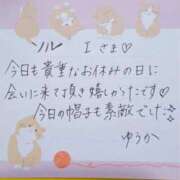 Iさま♡
今日も貴重なお休みの日に
会いに来て頂き嬉しかったです♡
今日の帽子も素敵でした
ゆうか